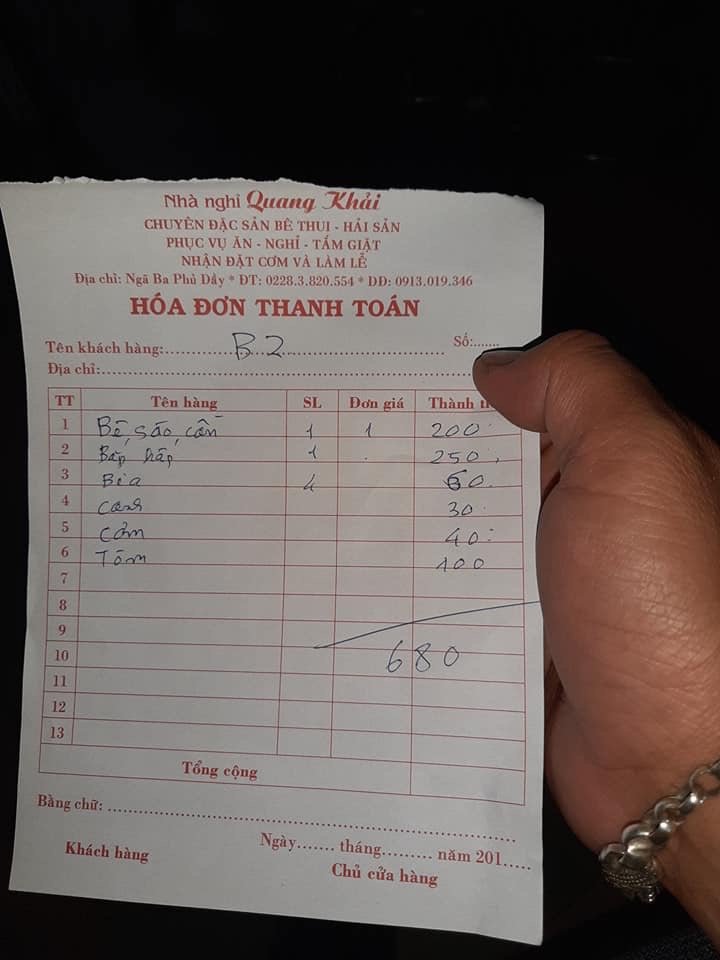 Nhà nghỉ Quang Khải
CHUYÊN ĐẶC SẢN BÊ THUI - HẢI SẢN
PHỤC VỤ ĂN - NGHỈ - TẮM GIẶT
NHẬN ĐẶT CƠM VÀ LÀM LỄ
Địa chỉ: Ngã Ba Phủ Dầy * ĐT: 0228.3.820.554 * DĐ: 0913.019.346
HÓA ĐƠN THANH TOÁN
Tên khách hàng: B2 Số:.......
Địa chỉ:
TT Tên hàng SL Đơn giá Thành
1 Bê, sáo, cần 1 1 200
2 Bắp hấp 1 250
3 Bia 4 60
4 canh 30
5 cơm 40
6 Tôm 100
7
8
9
10 680
11
12
13
Tổng cộng
Bằng chữ:
Ngày....... tháng......... năm 201.....
Khách hàng Chủ cửa hàng